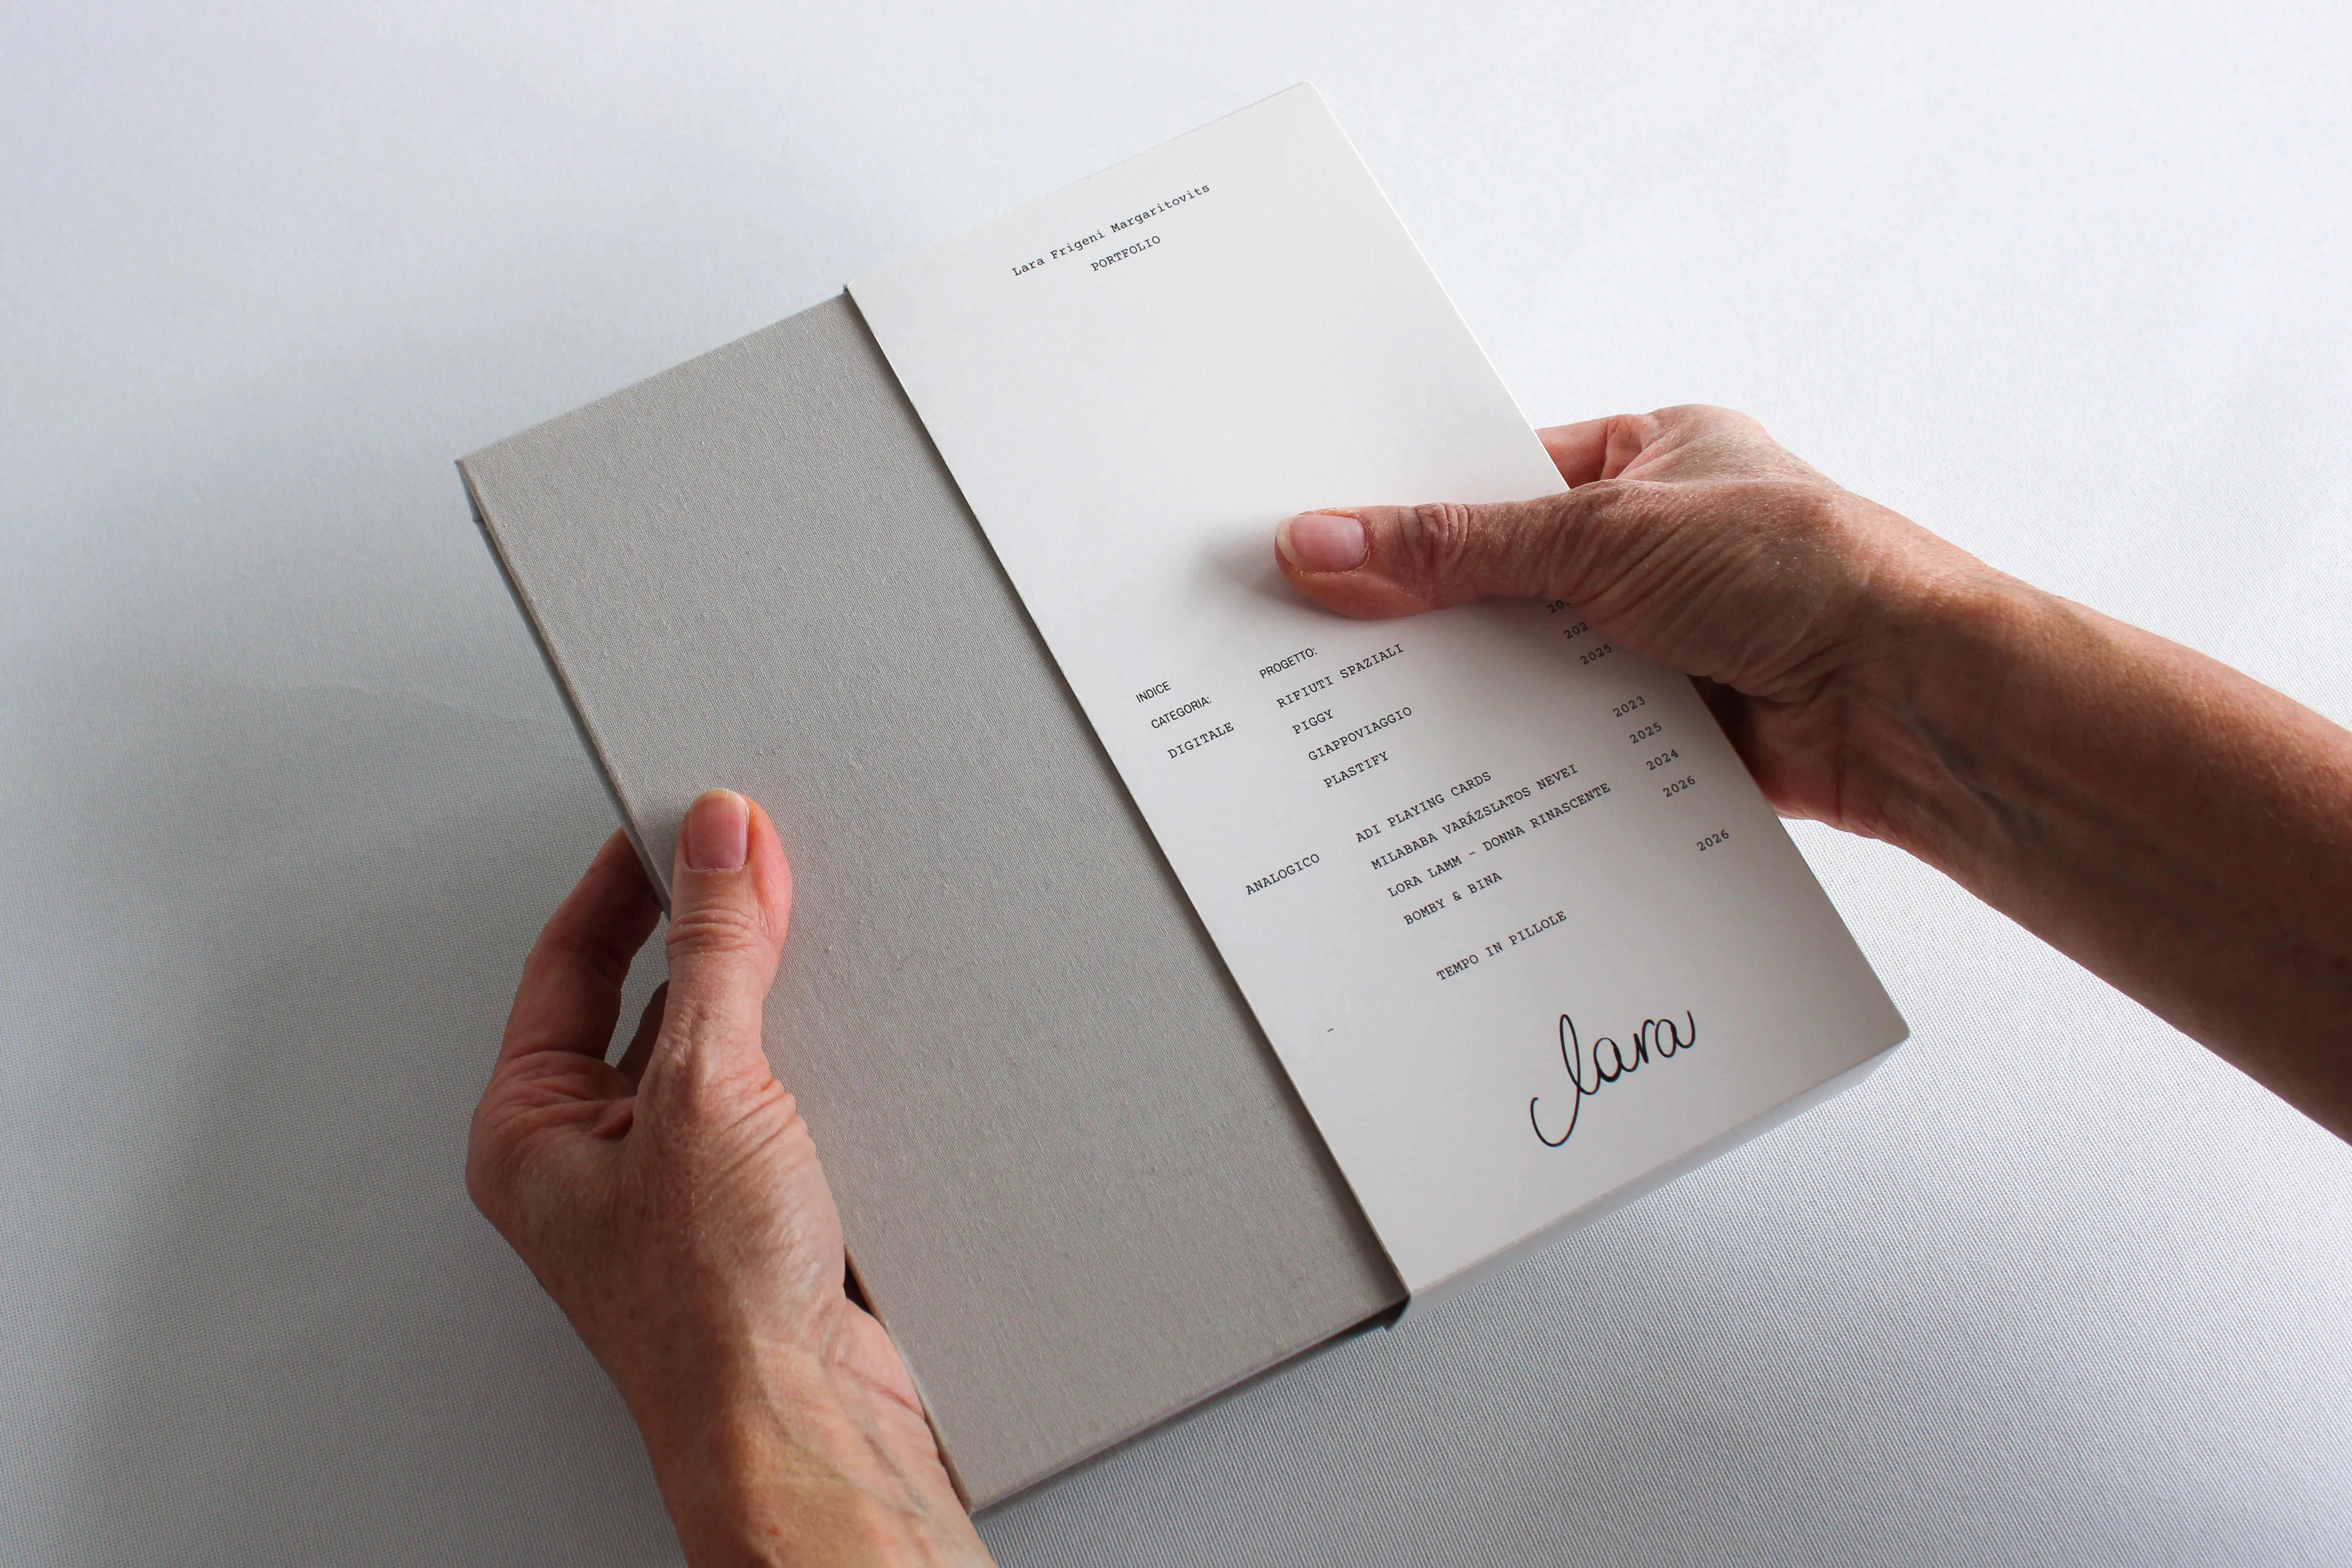 Lara Frigeni Margaritovits
PORTFOLIO
INDICE
CATEGORIA: PROGETTO:
DIGITALE RIFIUTI SPAZIALI
PIGGY
GIAPPOVIAGGIO
PLASTIFY 2025
ANALOGICO ADI PLAYING CARDS 2023
MILABABA VARÁZSLATOS NEVEI 2025
LORA LAMM - DONNA RINASCENTE 2024
BOMBY & BINA 2026
TEMPO IN PILLOLE 2026
-
lara